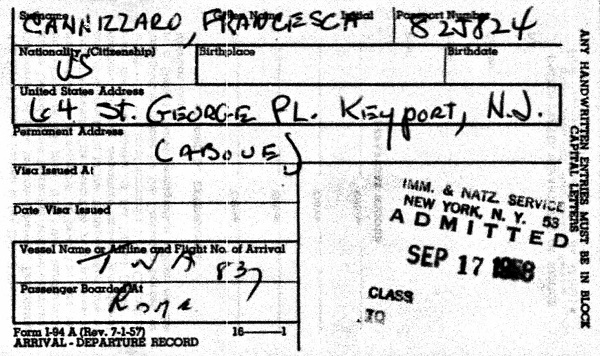 Surname Given Name Initial Passport Number
CANNIZZARO, FRANCESCA 825824
Nationality (Citizenship) Birthplace Birthdate
US
United States Address
64 ST. GEORGE PL. KEYPORT, N.J.
Permanent Address
(ABOVE)
Visa Issued At
Date Visa Issued
Vessel Name or Airline and Flight No. of Arrival
TWA 837
Passenger Boarded At
Rome
Form I-94 A (Rev. 7-1-57) 16——1
ARRIVAL - DEPARTURE RECORD
IMM. & NATZ. SERVICE
NEW YORK, N. Y. 53
ADMITTED
SEP 17 1958
CLASS
TO
ANY HANDWRITTEN ENTRIES MUST BE IN BLOCK
CAPITAL LETTERS